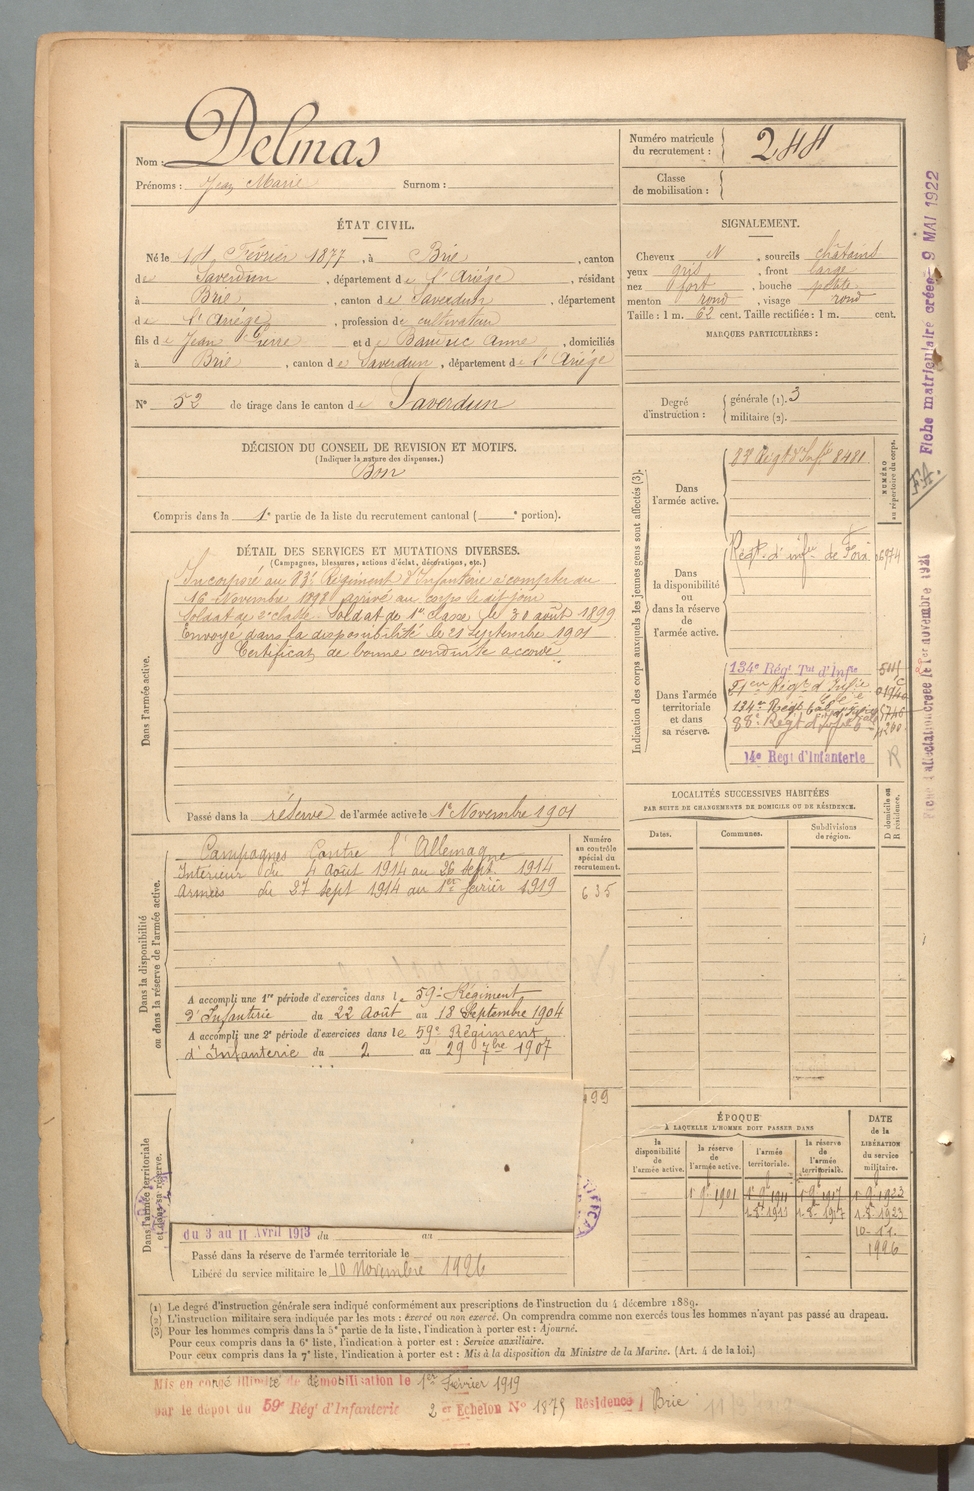 Nom : Delmas
Prénoms : Jean Marie Surnom :
Numéro matricule du recrutement : 244
Classe de mobilisation :
ÉTAT CIVIL.
Né le 14 Février 1877, à Brie, canton
de Saverdun, département de l'Ariége, résidant
à Brie, canton de Saverdun, département
de l'Ariége, profession de cultivateur
fils de Jean Pierre et de Anne, domiciliés
à Brie, canton de Saverdun, département de l'Ariége
N° 52 de tirage dans le canton de Saverdun
SIGNALEMENT.
Cheveux N, sourcils châtains
yeux gris, front large
nez fort, bouche petite
menton rond, visage rond
Taille : 1 m. 62 cent. Taille rectifiée : 1 m. cent.
MARQUES PARTICULIÈRES :
Degré d'instruction : générale (1). 3
militaire (2).
DÉCISION DU CONSEIL DE REVISION ET MOTIFS.
(Indiquer la nature des dispenses.)
Bon
Compris dans la 1e partie de la liste du recrutement cantonal ( e portion).
DÉTAIL DES SERVICES ET MUTATIONS DIVERSES.
(Campagnes, blessures, actions d'éclat, décorations, etc.)
Dans l'armée active.
Incorporé au 83e Régiment d'Infanterie à compter du
16 Novembre 1898 arrivé au corps le dit jour
Soldat de 2e classe. Soldat de 1re classe le 30 août 1899
Envoyé dans la disponibilité le 21 septembre 1901
Certificat de bonne conduite accordé
Passé dans la réserve de l'armée active le 1er Novembre 1901
Indication des corps auxquels les jeunes gens sont affectés (3).
NUMÉRO au répertoire du corps.
Dans l'armée active.
83e Régt d'Infie 8481
Dans la disponibilité ou dans la réserve de l'armée active.
Régt d'infie de Foix
Dans l'armée territoriale et dans sa réserve.
134e Régt Tal d'Infie
88e Régt
14e Régt d'Infanterie
R
LOCALITÉS SUCCESSIVES HABITÉES
PAR SUITE DE CHANGEMENTS DE DOMICILE OU DE RÉSIDENCE.
Dates.
Communes.
Subdivisions de région.
D domicile ou R résidence.
Dans la disponibilité ou dans la réserve de l'armée active.
Numéro au contrôle spécial du recrutement.
635
Campagnes Contre l'Allemagne
Intérieur du 4 Août 1914 au 26 sept. 1914
Armées du 27 sept 1914 au 1er février 1919
A accompli une 1re période d'exercices dans le 59e Régiment
d'Infanterie du 22 Août au 18 Septembre 1904
A accompli une 2e période d'exercices dans le 59e Régiment
d'Infanterie du 2 au 29 7bre 1907
99
Dans l'armée territoriale et dans sa réserve.
du 3 au 11 Avril 1913 du au
Passé dans la réserve de l'armée territoriale le
Libéré du service militaire le 10 Novembre 1926
ÉPOQUE
À LAQUELLE L'HOMME DOIT PASSER DANS
la disponibilité de l'armée active.
la réserve de l'armée active.
l'armée territoriale.
la réserve de l'armée territoriale.
DATE de la LIBÉRATION du service militaire.
1er 9bre 1901
1er 9bre 1911
1er 9bre 1917
1er 9bre 1923
10-11.
1926
(1) Le degré d'instruction générale sera indiqué conformément aux prescriptions de l'instruction du 4 décembre 1889.
(2) L'instruction militaire sera indiquée par les mots : exercé ou non exercé. On comprendra comme non exercés tous les hommes n'ayant pas passé au drapeau.
(3) Pour les hommes compris dans la 5e partie de la liste, l'indication à porter est : Ajourné.
Pour ceux compris dans la 6e liste, l'indication à porter est : Service auxiliaire.
Pour ceux compris dans la 7e liste, l'indication à porter est : Mis à la disposition du Ministre de la Marine. (Art. 4 de la loi.)
Mis en congé illimité de démobilisation le 1er Février 1919
par le dépot du 59e Régt d'Infanterie 2er Echelon N° 1875 Résidence Brie
Fiche matriculaire créée 9 MAI 1922
F.A.
Fiche d'affectation créée le 1er novembre 1921